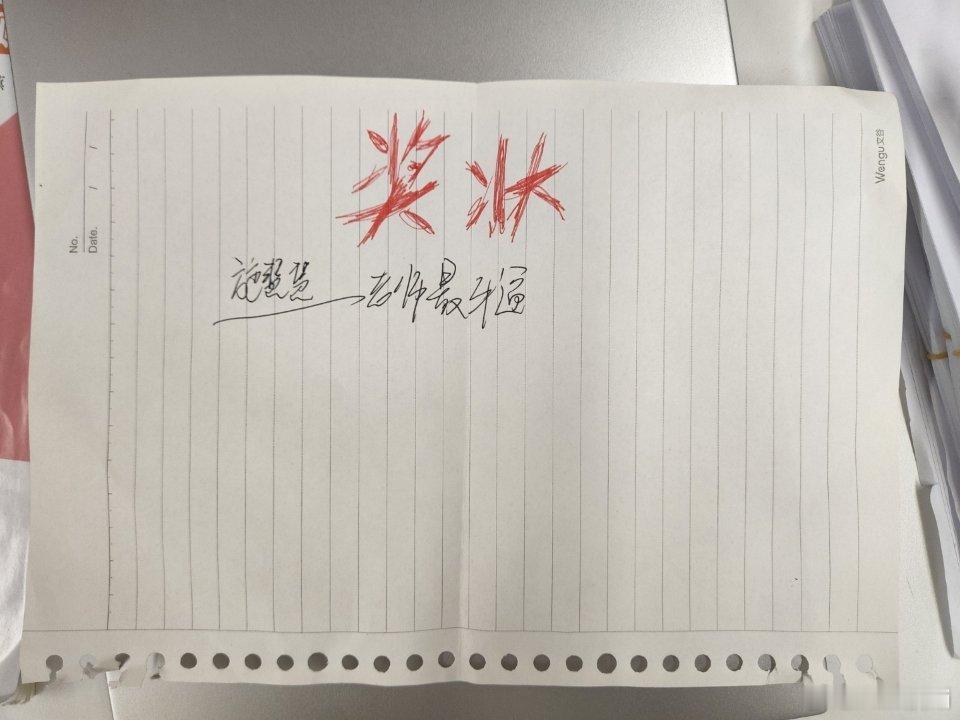 奖状
施慧慧老师最牛逼
No.
Date. / /
Wengu文谷